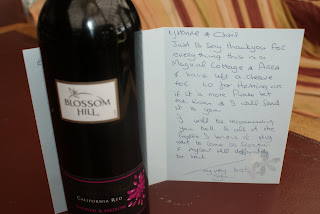 Just to say thankyou for
everything this is a
Magical Cottage & Area
I have left a cheque
for
if it is more please let
me know & I will send
it to you.
I will be recommending
you both to all of the
people I know if they
want to come to
& myself will definitely
be back
BLOSSOM
HILL
CALIFORNIA RED